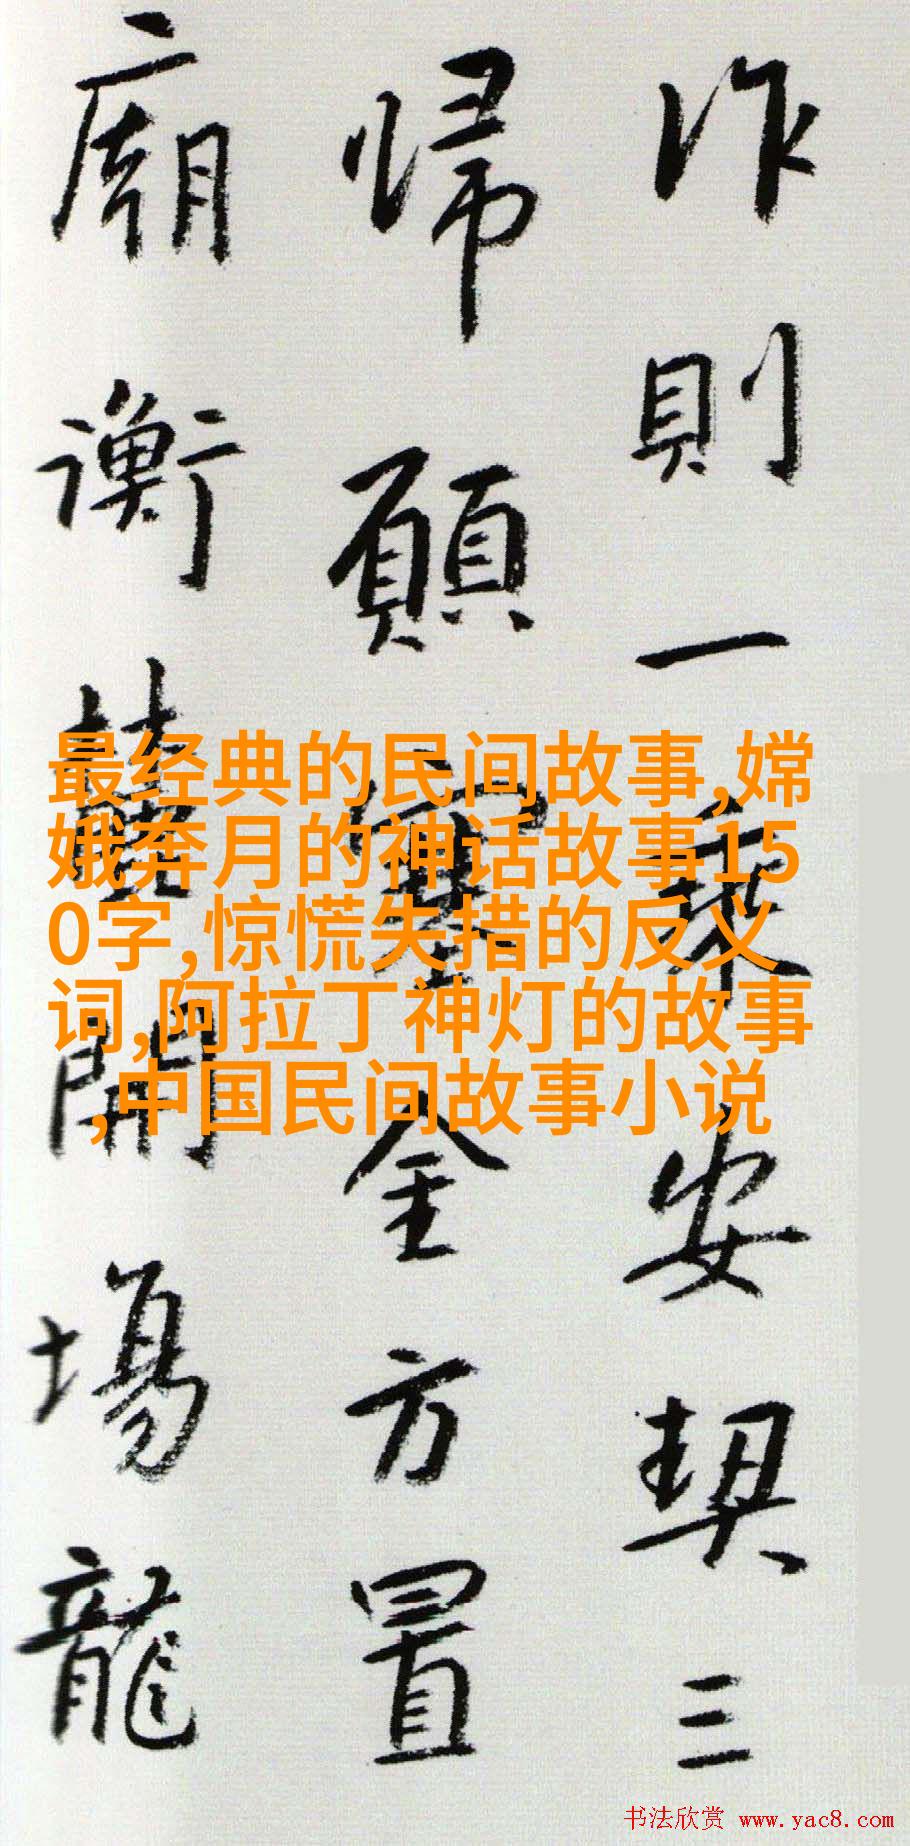 作則一乘安契三
歸願塞全方置
廟衡開場龍
最经典的民间故事,嫦
娥奔月的神话故事15
0字,惊慌失措的反义
词,阿拉丁神灯的故事
,中国民间故事小说
书法欣赏 www.yac8.com